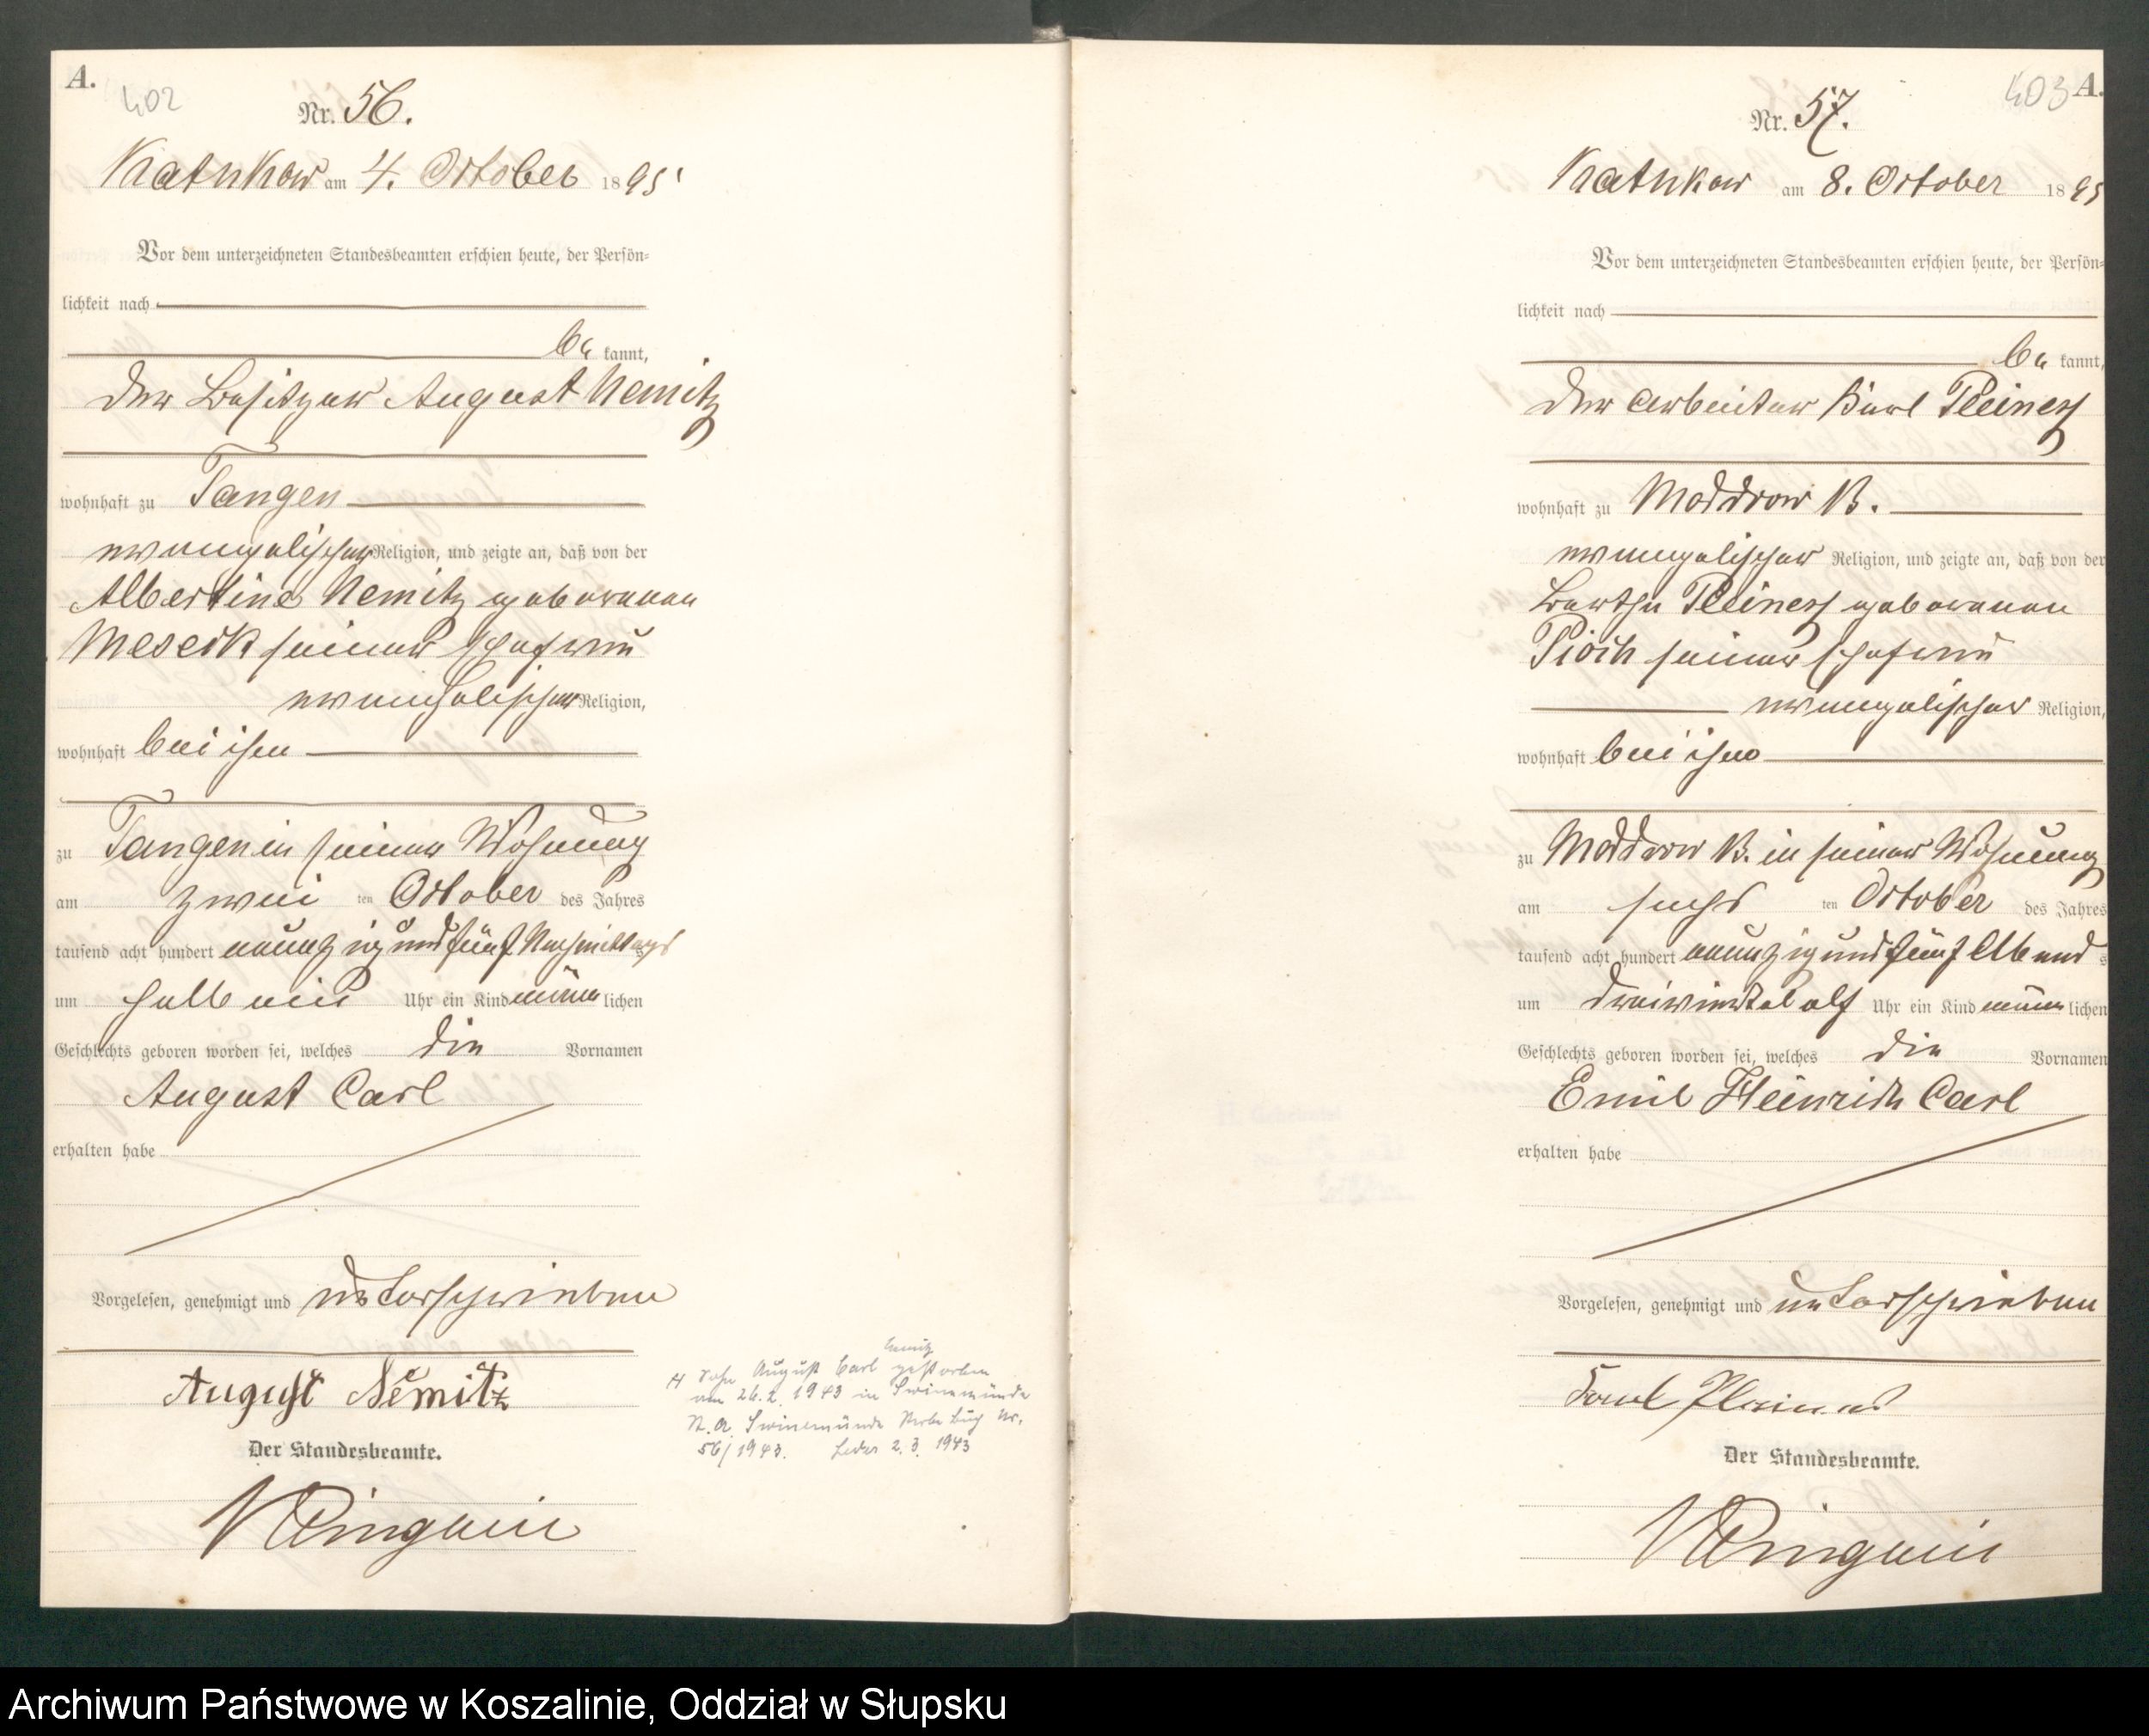 A.
402
Nr. 56.
Kathkow am 4. October 1895
Vor dem unterzeichneten Standesbeamten erschien heute, der Persön-
lichkeit nach
be kannt,
der Besitzer August Nemitz
wohnhaft zu Tangen
evangelischer Religion, und zeigte an, daß von der
Albertine Nemitz geborenen
Meseck seiner Ehefrau
evangelischer Religion,
wohnhaft bei ihm
zu Tangen in seiner Wohnung
am zwei ten October des Jahres
tausend acht hundert neunzig und fünf Nachmittags
um halb ein Uhr ein Kind männlichen
Geschlechts geboren worden sei, welches die Vornamen
August Carl
erhalten habe
Vorgelesen, genehmigt und unterschrieben
August Nemitz
Der Standesbeamte.
H Sohn August Carl Nemitz gestorben
am 26.2.1943 in Swinemünde
St. A. Swinemünde Sterbebuch Nr.
56/1943. 2.3.1943
403 A.
Nr. 57.
Kathkow am 8. October 1895
Vor dem unterzeichneten Standesbeamten erschien heute, der Persön-
lichkeit nach
be kannt,
der Arbeiter Karl Pleines
wohnhaft zu Moddrow B.
evangelischer Religion, und zeigte an, daß von der
Bertha Pleines geborenen
Pioch seiner Ehefrau
evangelischer Religion,
wohnhaft bei ihm
zu Moddrow B. in seiner Wohnung
am sechs ten October des Jahres
tausend acht hundert neunzig und fünf Abends
um dreiviertel elf Uhr ein Kind männlichen
Geschlechts geboren worden sei, welches die Vornamen
Emil Heinrich Carl
erhalten habe
Vorgelesen, genehmigt und unterschrieben
Der Standesbeamte.
Archiwum Państwowe w Koszalinie, Oddział w Słupsku